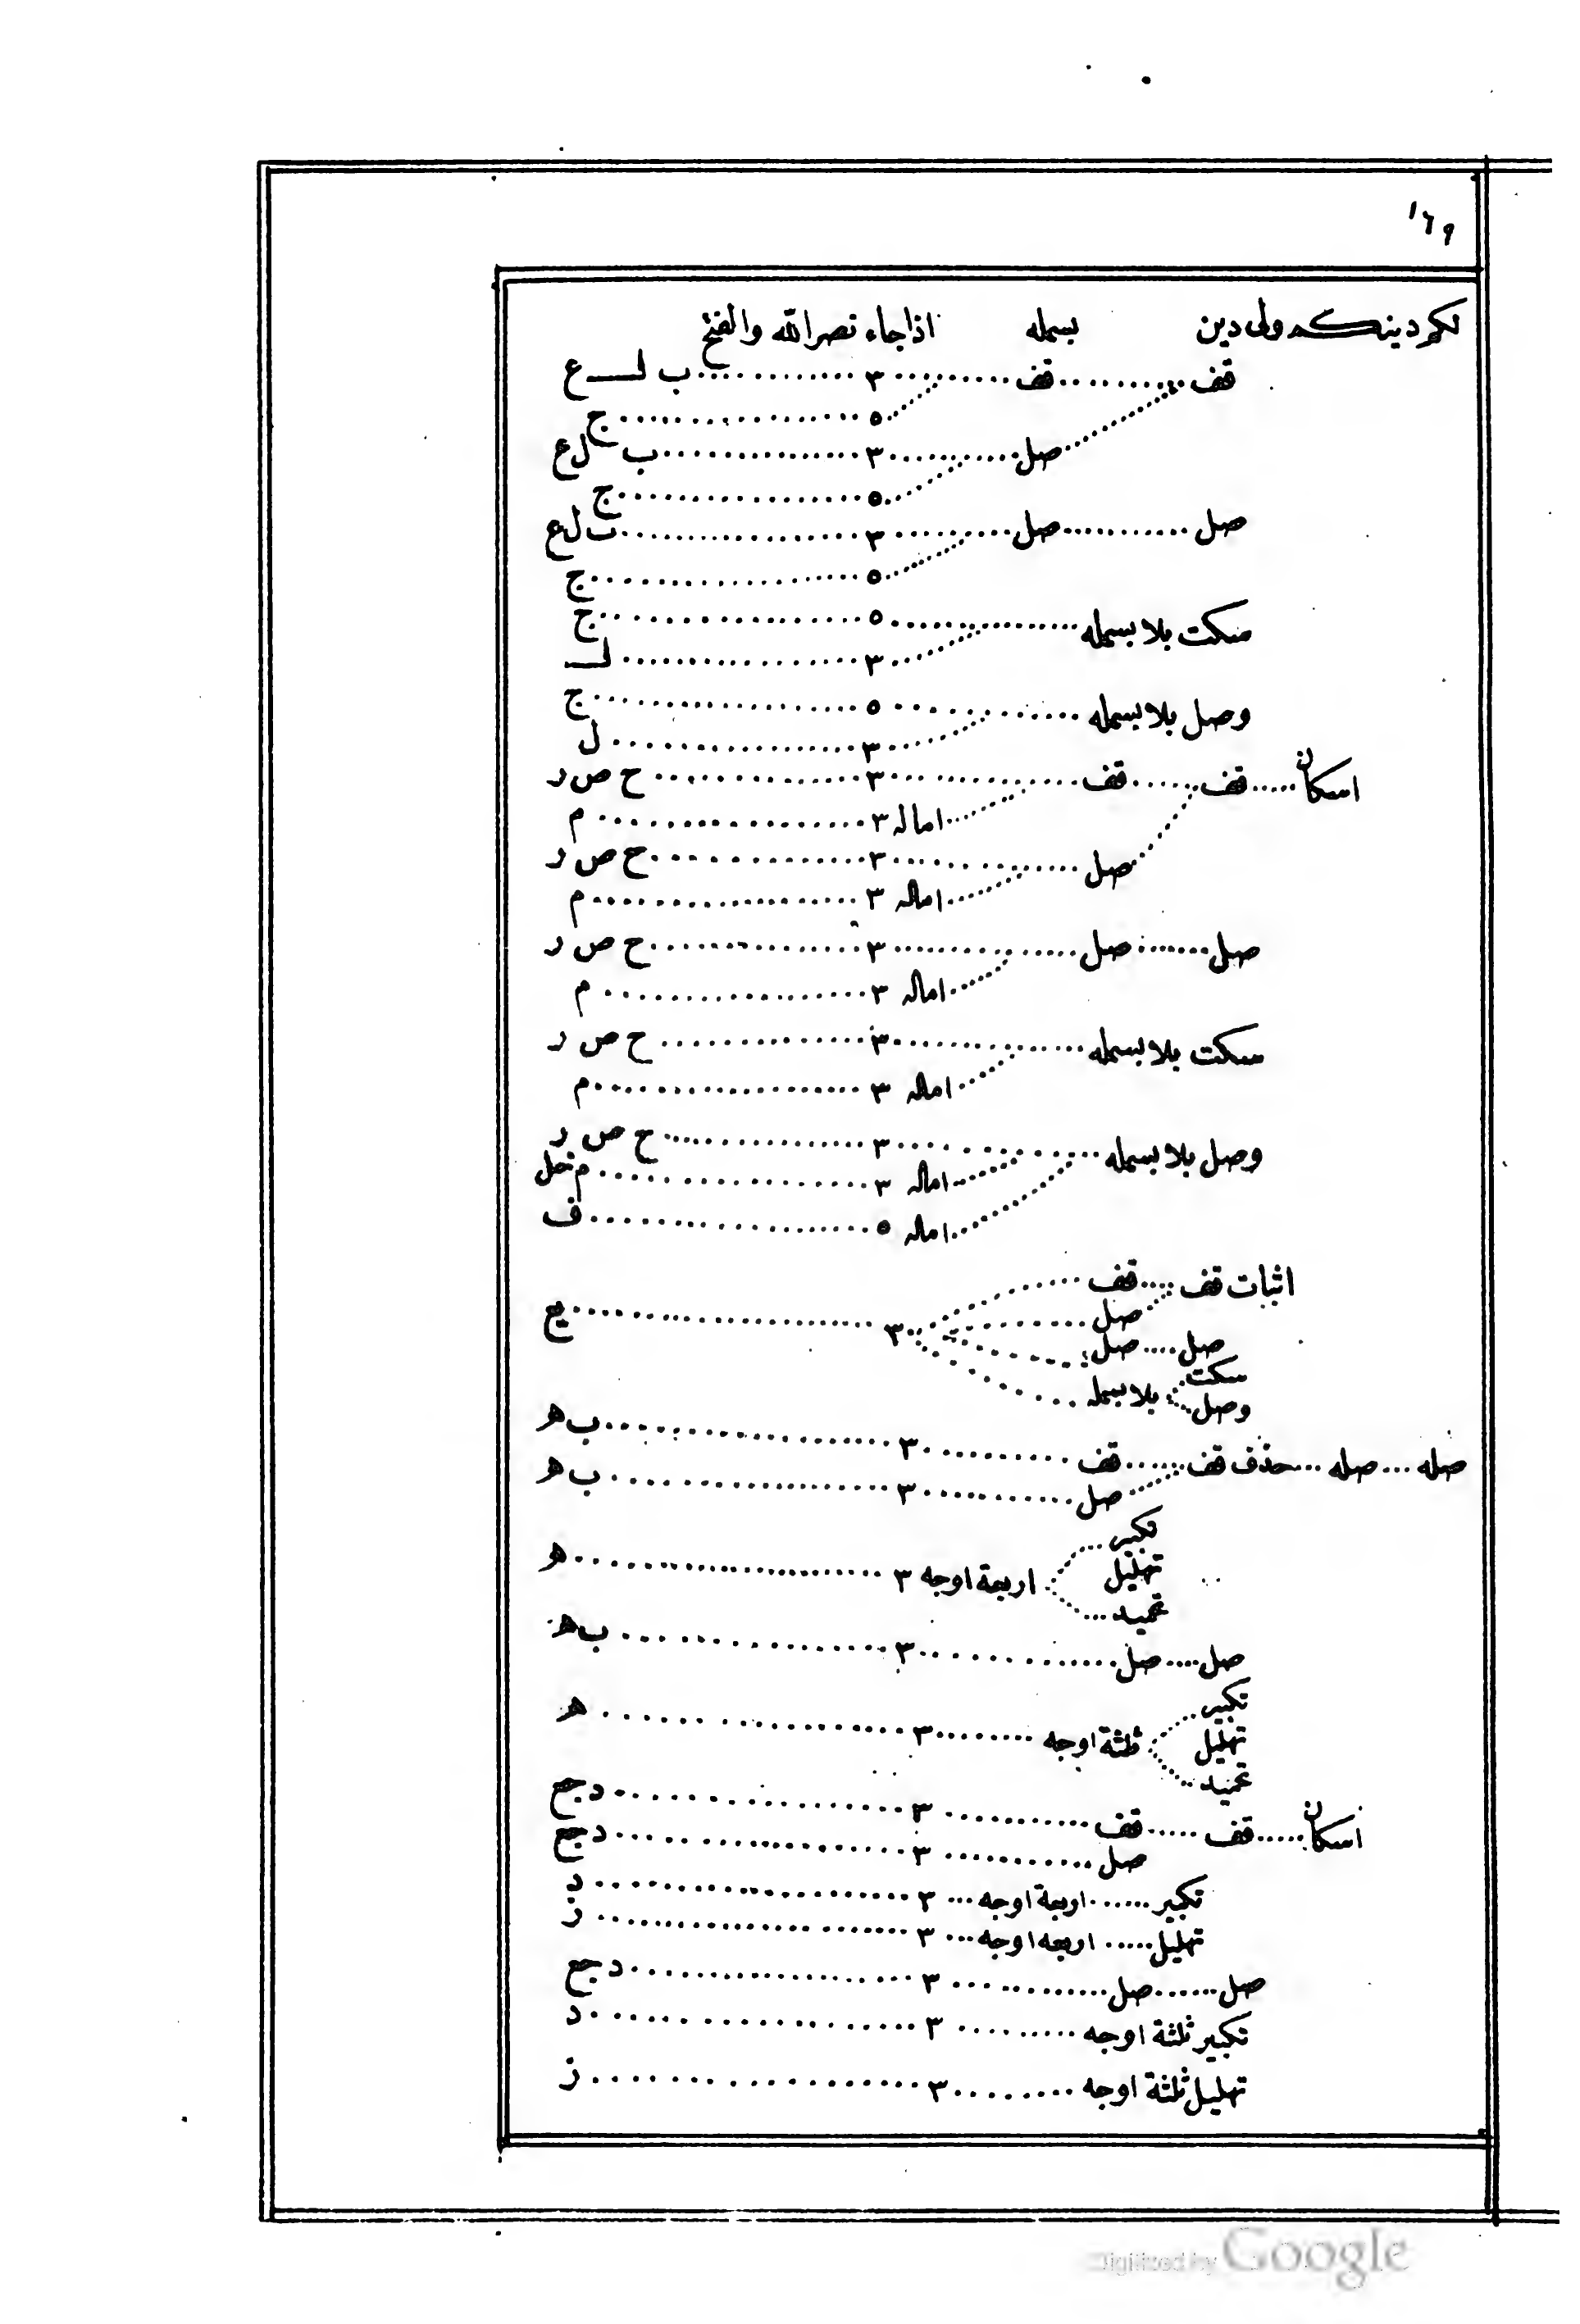 ١٦٩
لكم دينكم ولى دين بسمله اذا جاء نصر الله والفتح
قف قف ٣ ب ل ع
٥ ج
صل ٣ ب ل ع
٥ ج
صل صل ٣ ب ل ع
٥ ج
سكت بلا بسمله ٥ ج
٣ ل
وصل بلا بسمله ٥ ج
٣ ل
اسكان قف قف ٣ ح ص ر
اماله ٣ م
صل ٣ ح ص ر
اماله ٣ م
صل صل ٣ ح ص ر
اماله ٣ م
سكت بلا بسمله ٣ ح ص ر
اماله ٣ م
وصل بلا بسمله ٣ ح ص ر
اماله ٣ م
اماله ٥ ف
اثبات قف قف
صل
٣
صل صل
سكت
بلا بسمله
وصل
صله صله حذف قف قف ٣ ب ه
صل ٣ ب ه
تكبير
تهليل اربعة اوجه ٣ ه
تحميد
صل صل ٣ ب ه
تكبير
تهليل ثلثة اوجه ٣ ه
تحميد
اسكان قف قف ٣ د
صل ٣ د
تكبير اربعة اوجه ٣ د
تهليل اربعه اوجه ٣ ز
صل صل ٣ د
تكبير ثلثة اوجه ٣ د
تهليل ثلثة اوجه ٣ ز
Digitized by Google